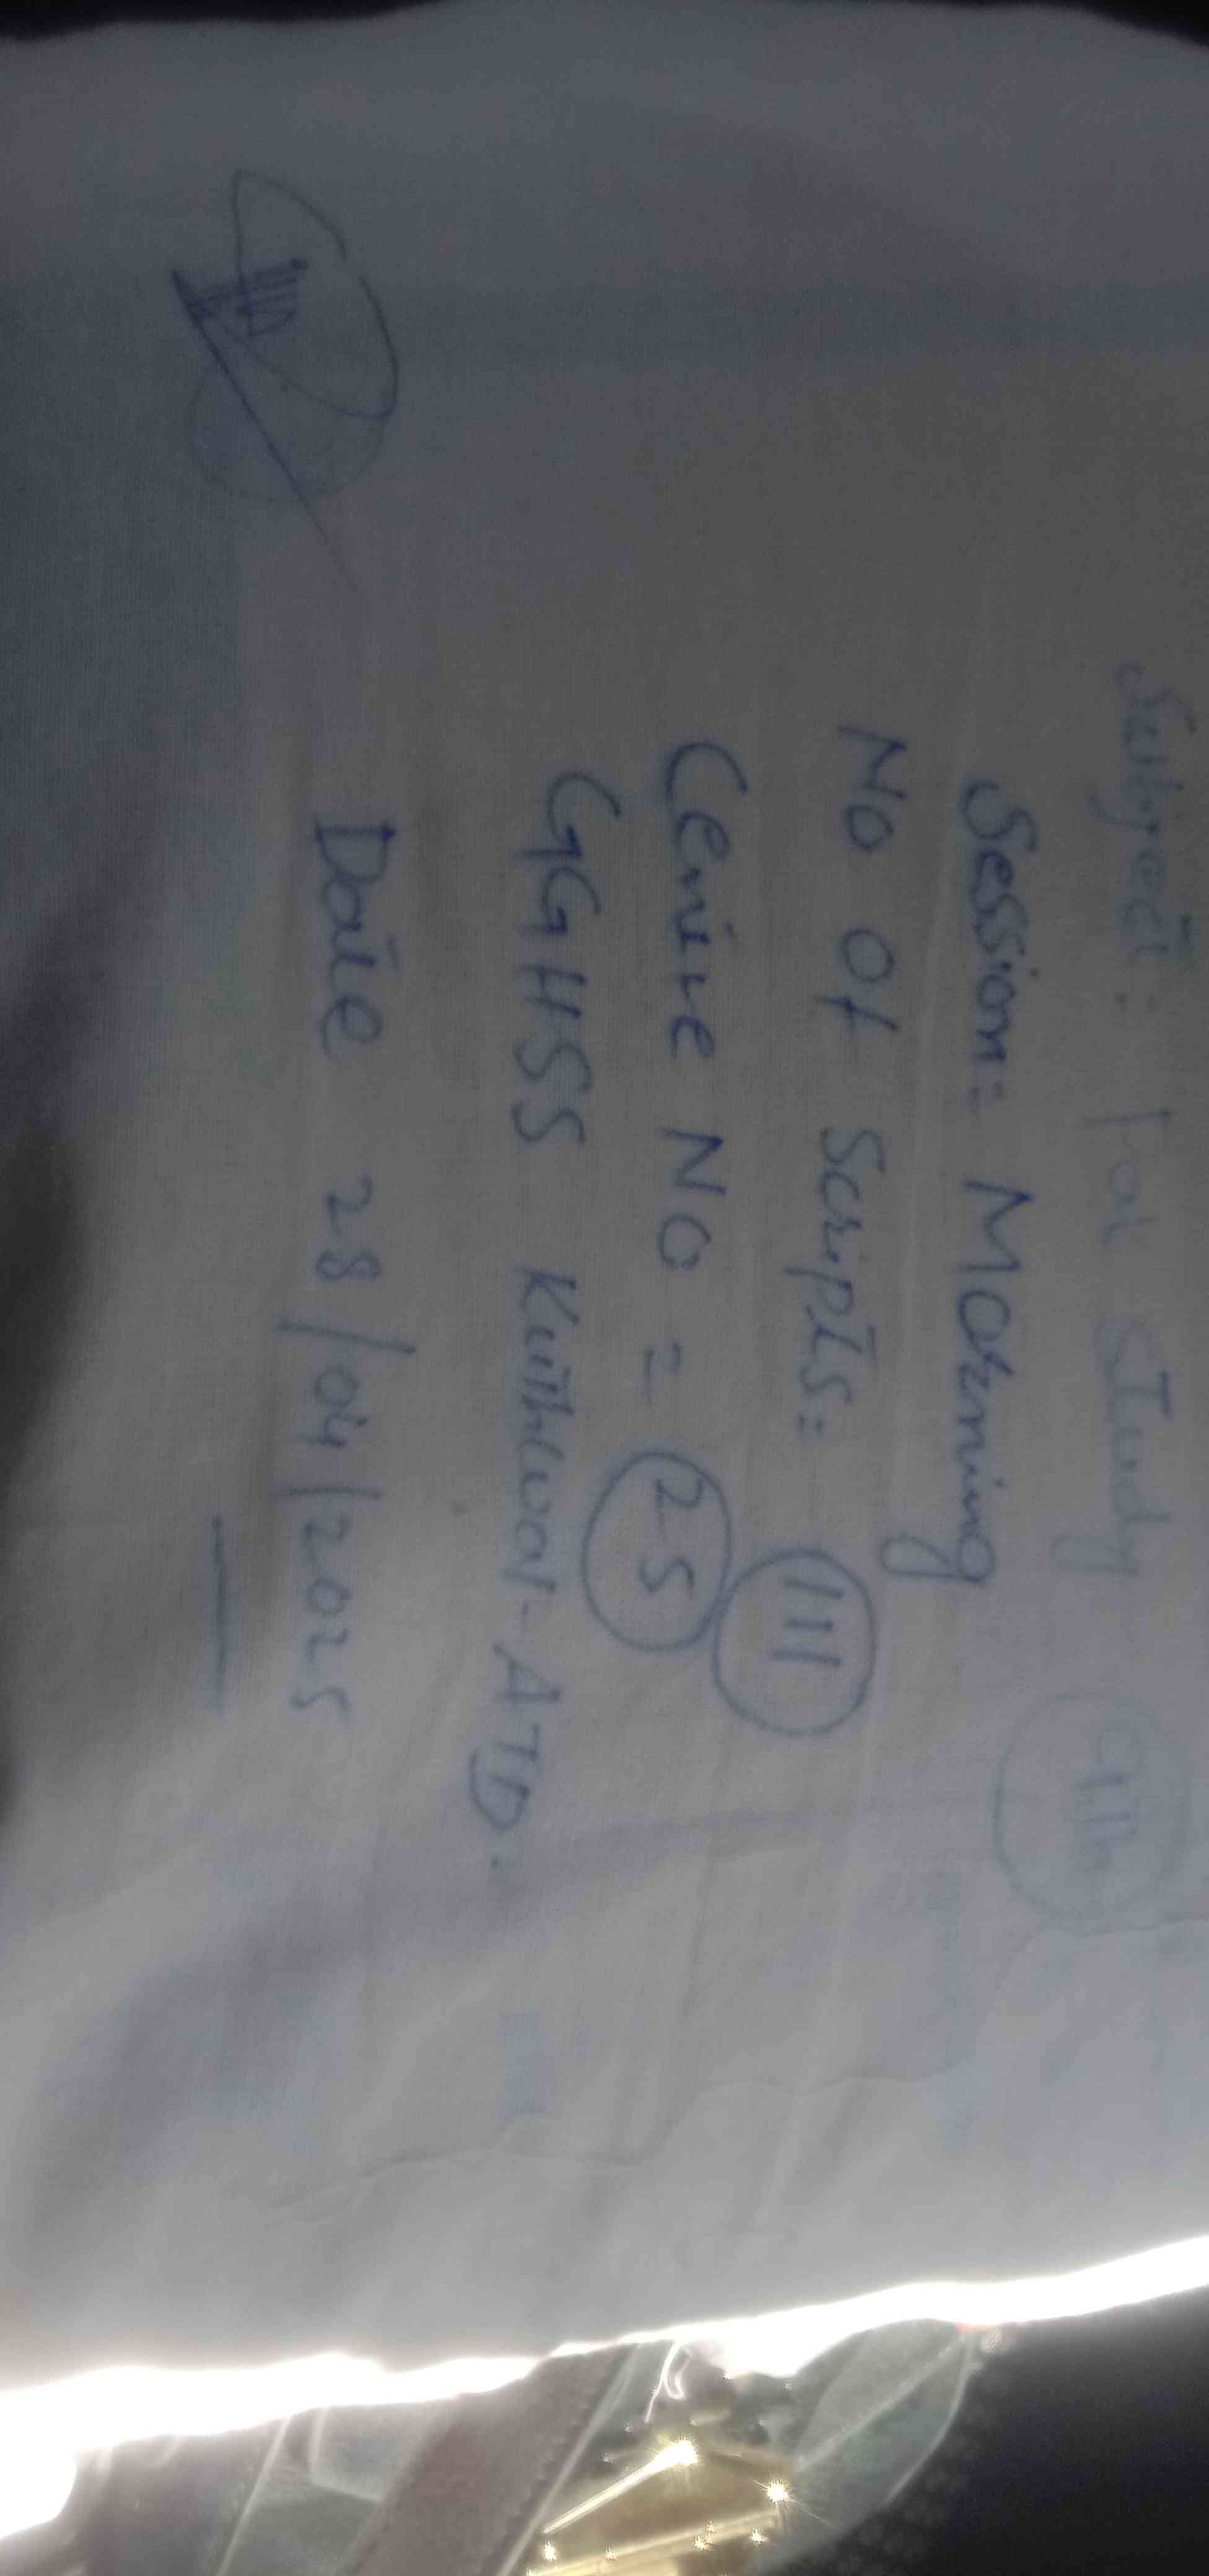 Subject: Pak Study 9th
Session: Morning
No of Scripts: 111
Centre No = 25
GGHSS Kuthwal-ATD.
Date 28/04/2025